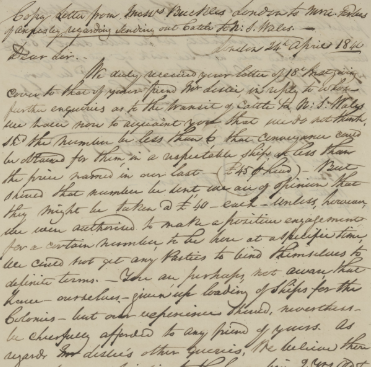 Copy Letter from Mess.rs Buckles London to
of regarding sending out Cattle to N. S. Wales.
London 24th April 18
Dear Sir.
We duly received your letter of 18 Inst. giving
cover to that of your friend Mr Leslie in reply to whose
further enquiries as to the transit of Cattle to N. S. Wales
we have now to acquaint you that we do not think,
if the number be less than 6 that conveyance could
be obtained for them in a respectable Ship at less than
the price named in our last - £45 p head) - But
should that number be sent we are of opinion that
they might be taken @ £40 - each - Unless, however,
we were authorised to make a positive engagement
for a certain number to be here at a specific time,
we could not get any Parties to bind themselves to
definite terms. - You are perhaps, not aware that
- ourselves - given up loading of Ships for the
Colonies - but our experience should, nevertheless
be cheerfully afforded to any friend of yours. As
regards Mr Leslie's other queries, We believe there